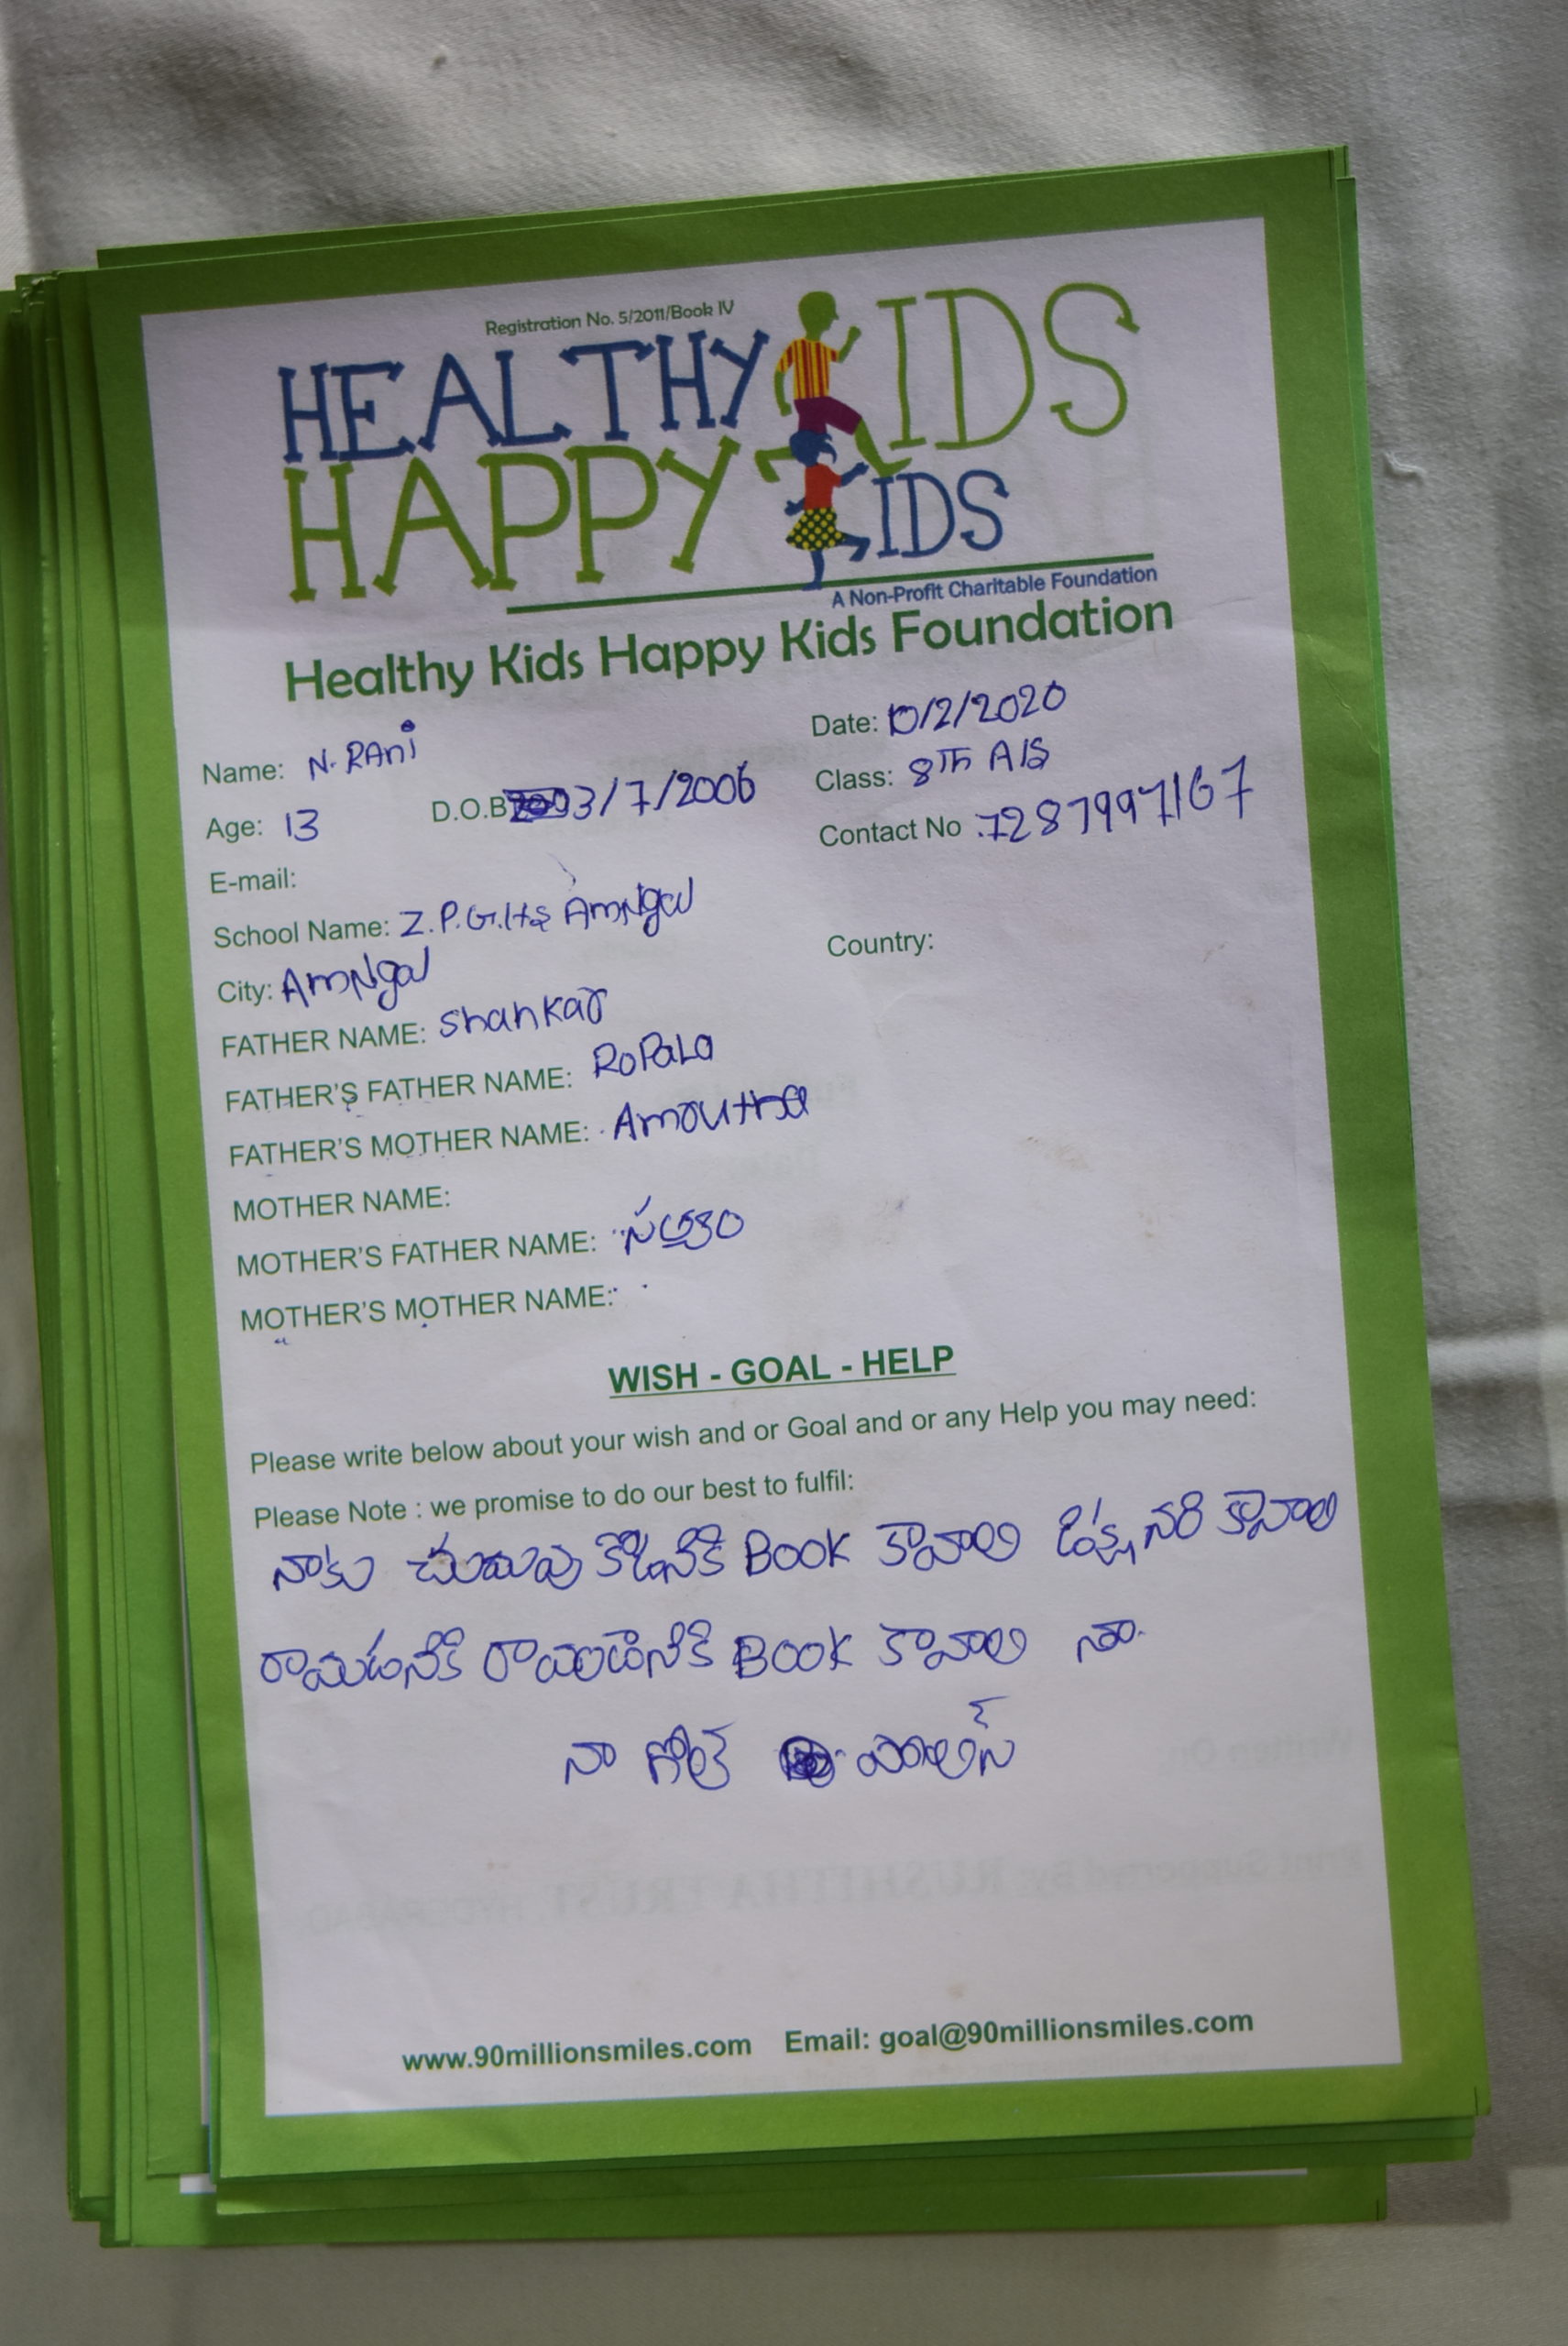 Registration No. 5/2011/Book IV
HEALTHY KIDS
HAPPY KIDS
A Non-Profit Charitable Foundation
Healthy Kids Happy Kids Foundation
Date: 10/2/2020
Name: N. RAni
Class: 8Th A/S
Age: 13 D.O.B 3/7/2006
Contact No :7287997167
E-mail:
School Name: Z.P.G.H.S AmNgal
Country:
City: AmNgal
FATHER NAME: Shankar
FATHER'S FATHER NAME: RoPaLa
FATHER'S MOTHER NAME: Amrutha
MOTHER NAME:
MOTHER'S FATHER NAME:
MOTHER'S MOTHER NAME:
WISH - GOAL - HELP
Please write below about your wish and or Goal and or any Help you may need:
Please Note : we promise to do our best to fulfil:
నాకు Book కావాలి కావాలి
Book కావాలి నా
నా గోల్
www.90millionsmiles.com Email: goal@90millionsmiles.com